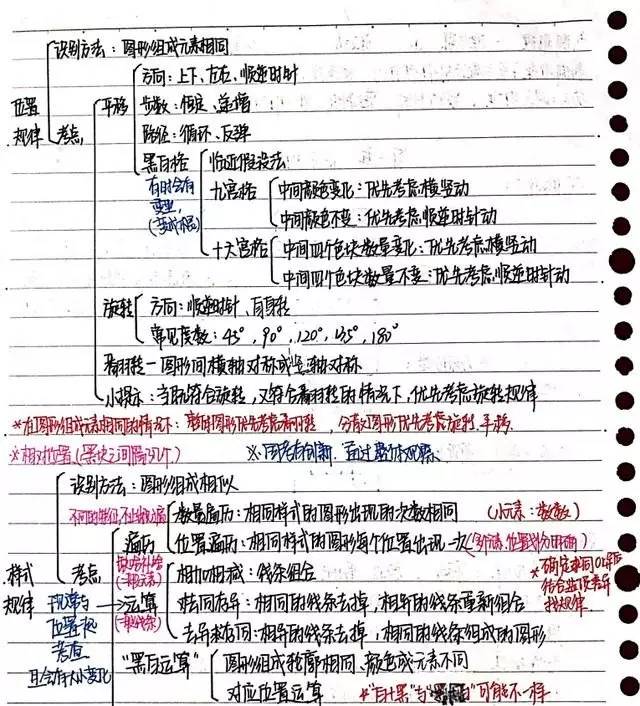 识别方法：图形组成元素相同
位置规律
考点
平移
方向：上下、左右、顺逆时针
步数：恒定、递增
路径：循环、反弹
黑白格
有时会有
临近假设法
九宫格
中间颜色变化：优先考虑横竖动
中间颜色不变：优先考虑顺逆时针动
十六宫格
中间四个色块数量变化：优先考虑横竖动
中间四个色块数量不变：优先考虑顺逆时针动
旋转
方向：顺逆时针、自身转
常见度数：45°，90°，120°，135°，180°
翻转—图形间横轴对称或竖轴对称
小提示：当既符合旋转，又符合翻转的情况下，优先考虑旋转规律
*在图形组成元素相同的情况下：整体图形优先考虑翻转，分散图形优先考虑旋转、平移
*相对位置（黑块之间隔几个）
样式规律
识别方法：图形组成相似
考点
遍历
数量遍历：相同样式的图形出现的次数相同（小元素：数数）
位置遍历：相同样式的图形每个位置出现一次
运算
相加相减：线条组合
去同存异：相同的线条去掉，相异的线条重新组合
去异存同：相异的线条去掉，相同的线条组成的图形
可常与位置规律考查
且会有大小变化
"黑白运算"
图形组成轮廓相同、颜色或元素不同
对应位置运算
*"白+黑"与"黑+白"可能不一样